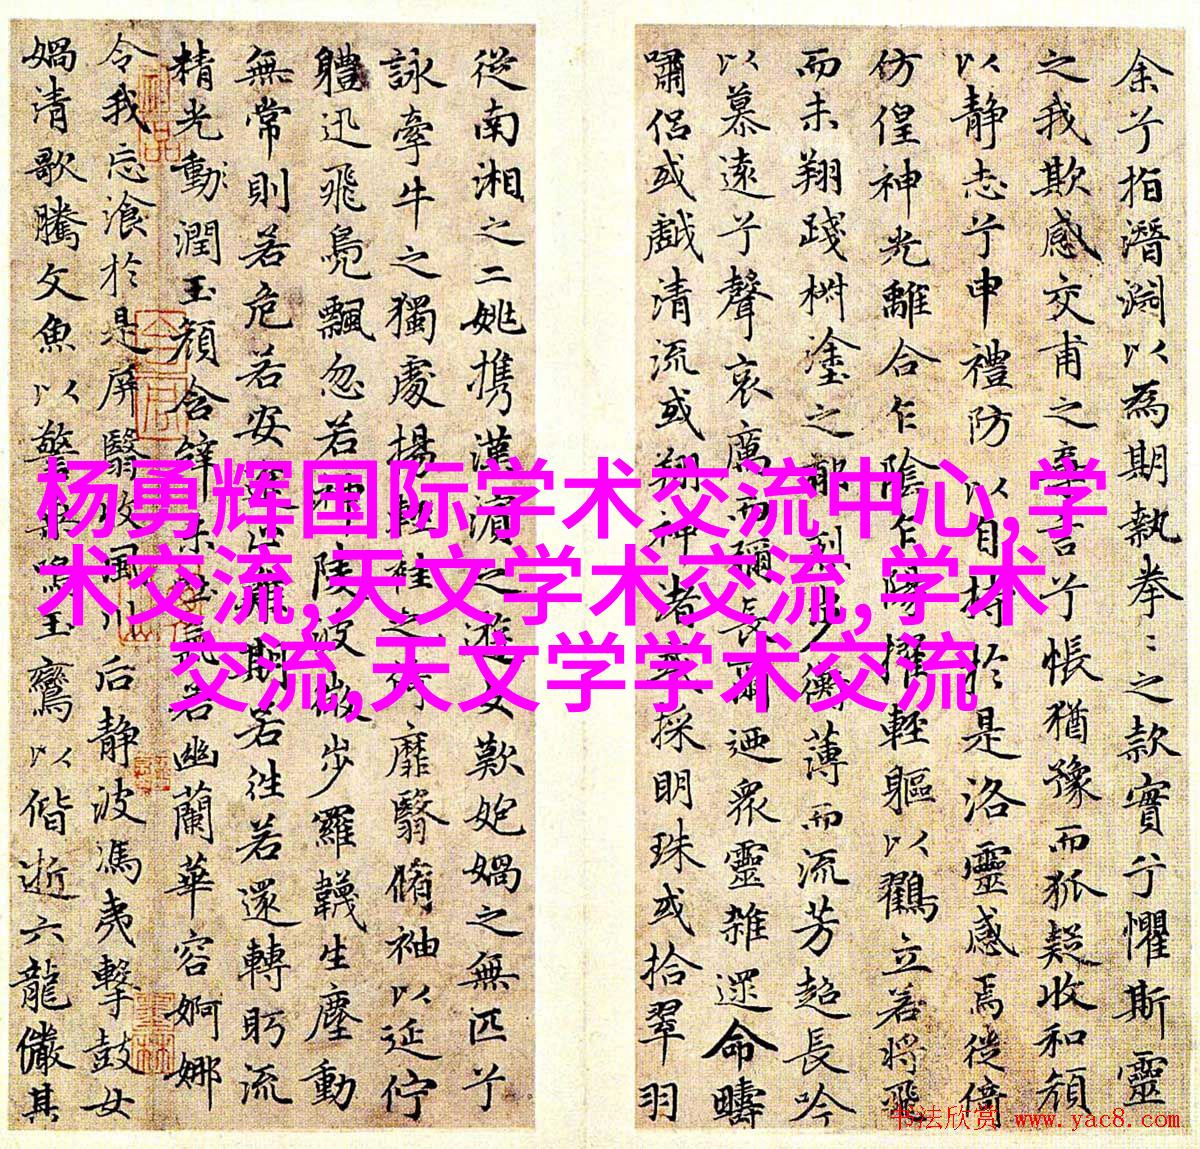 余兮指潛淵以為期執拳〻之款實兮懼斯靈
之我欺感交甫之弃言兮悵猶豫而狐疑收和顔
以静志兮申禮防以自持於是洛靈感焉徙倚
仿偟神光離合乍陰乍陽擢輕軀以鶴立若將飛
而未翔踐椒塗之郁烈步蘅薄而流芳超長吟
以慕遠兮聲哀厲而彌長爾迺衆靈雜遝命疇
嘯侶或戲清流或翔神渚或採明珠或拾翠羽
從南湘之二姚携漢濱之遊女歎匏媧之無匹兮
詠牽牛之獨處揚輕袿之猗靡翳脩袖以延佇
體迅飛鳧飄忽若神陵波微步羅韈生塵動
無常則若危若安進止難期若往若還轉眄流
精光動潤玉顔含辭未吐氣若幽蘭華容婀娜
令我忘飡於是屏翳收風川后静波馮夷擊鼓女
媧清歌騰文魚以警乘鳴玉鸞以偕逝六龍儼其
杨勇辉国际学术交流中心,学
术交流,天文学术交流,学术
交流,天文学学术交流
书法欣赏 www.yac8.com